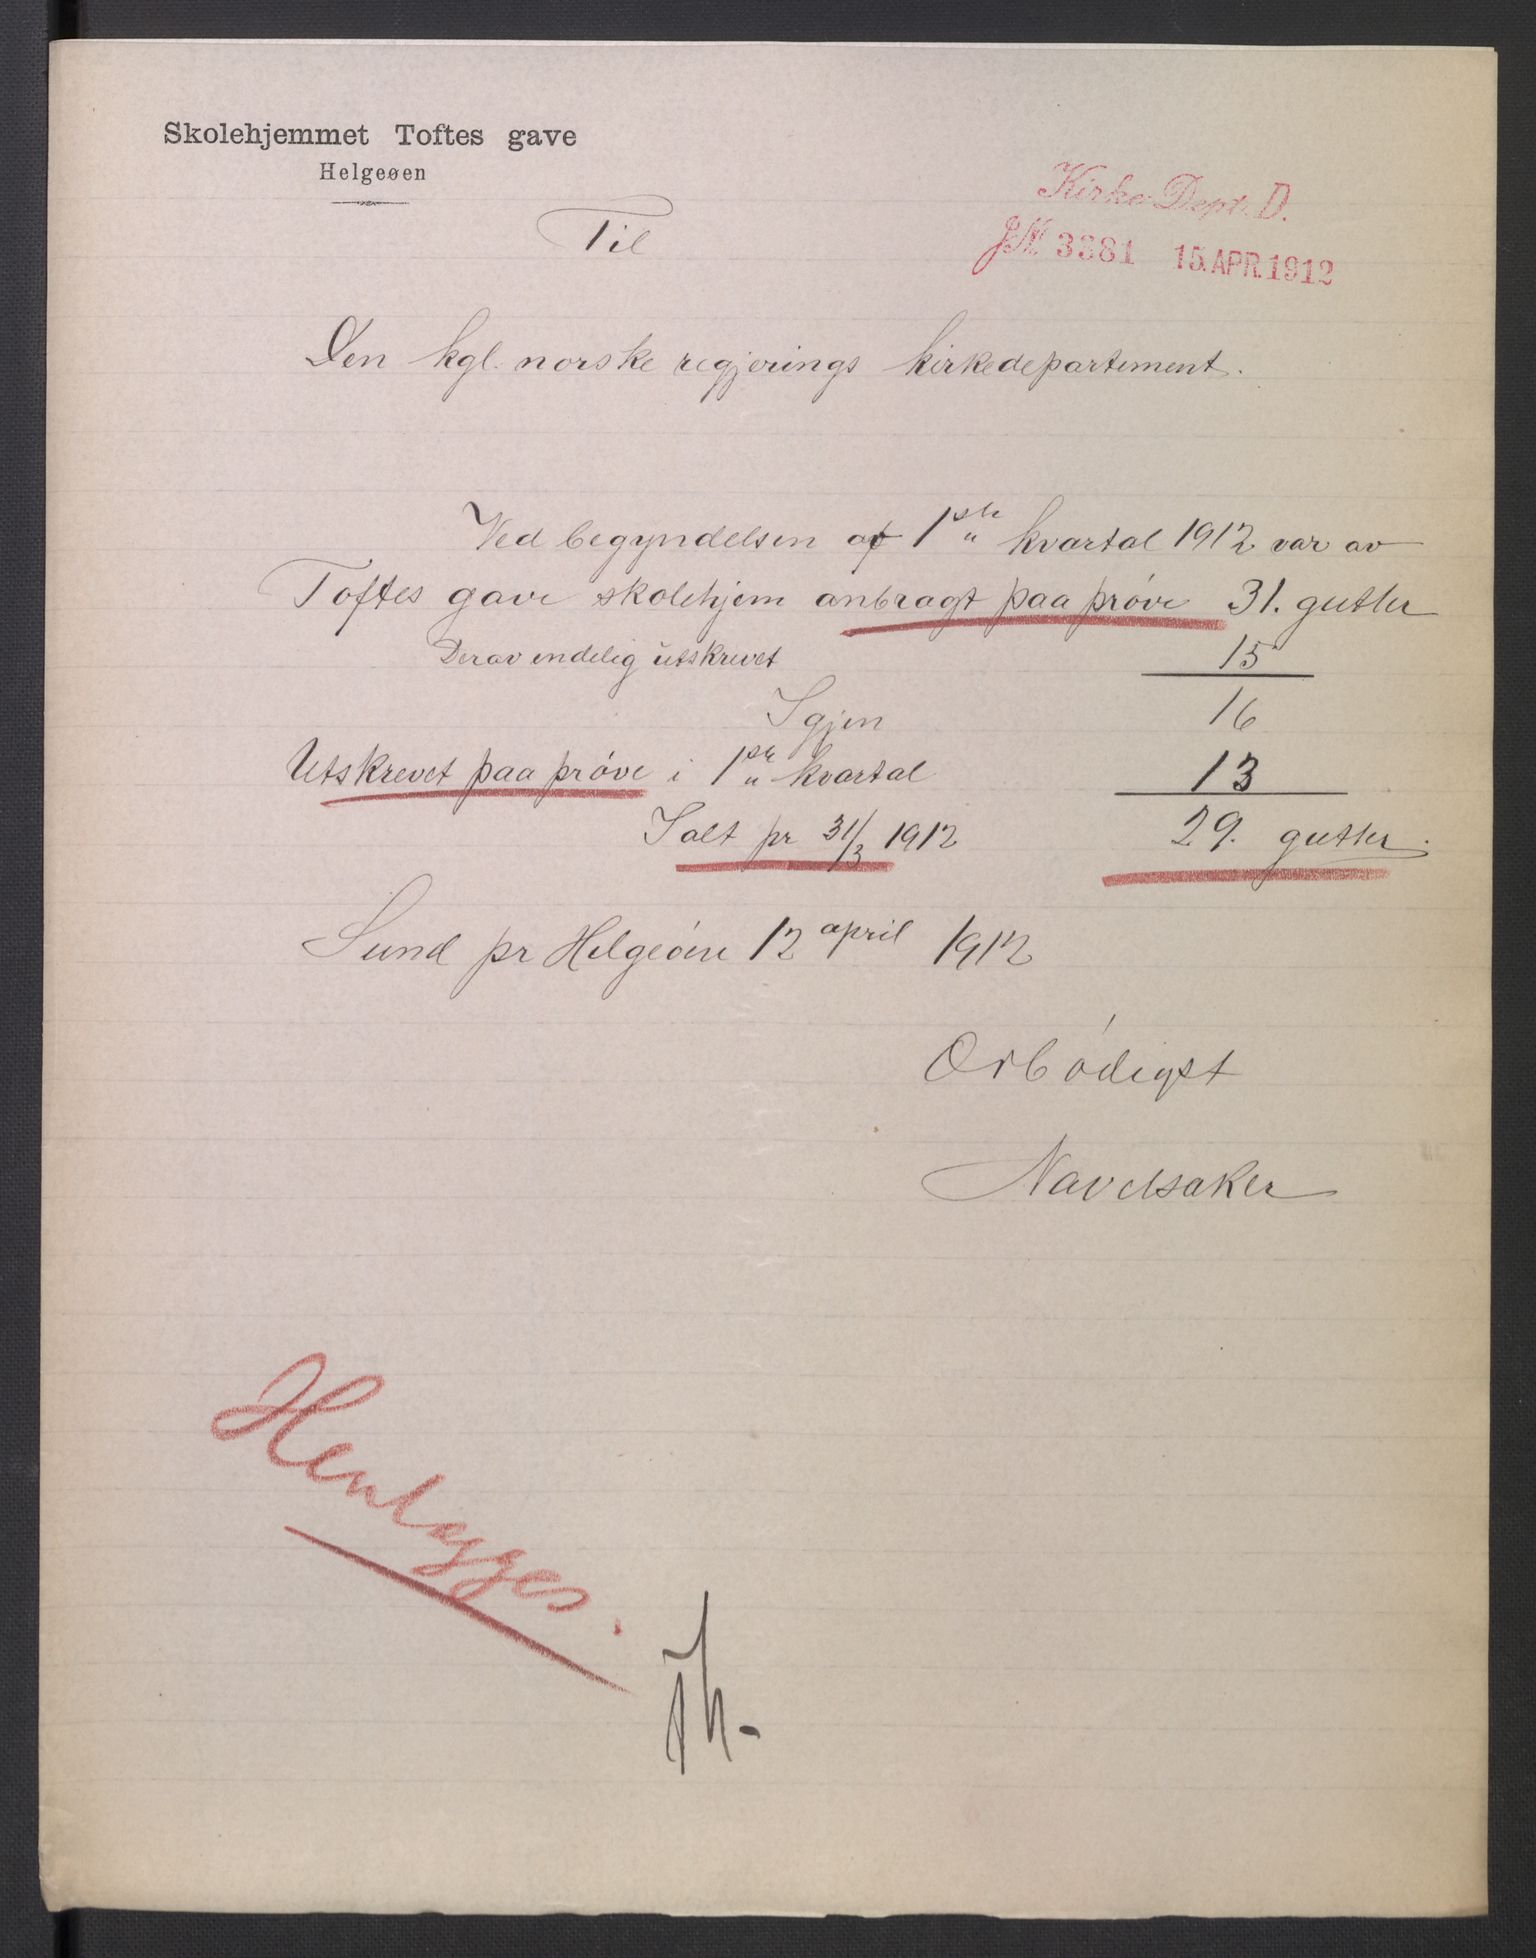 Skolehjemmet Toftes gave
Helgeøen
Kirke Dept. D.
JN 3381 15. APR. 1912
Til
Den kgl. norske regjerings kirkedepartement.
Ved begyndelsen af 1ste kvartal 1912 var av
Toftes gave skolehjem anbragt paa prøve 31. gutter
Derav endelig utskrevet 15
Igjen 16
Utskrevet paa prøve i 1ste kvartal 13
Ialt pr 31/3 1912 29. gutter.
Sund pr Helgeøen 12 april 1912
Ærbødigst
Navelsaker
Henlægges.